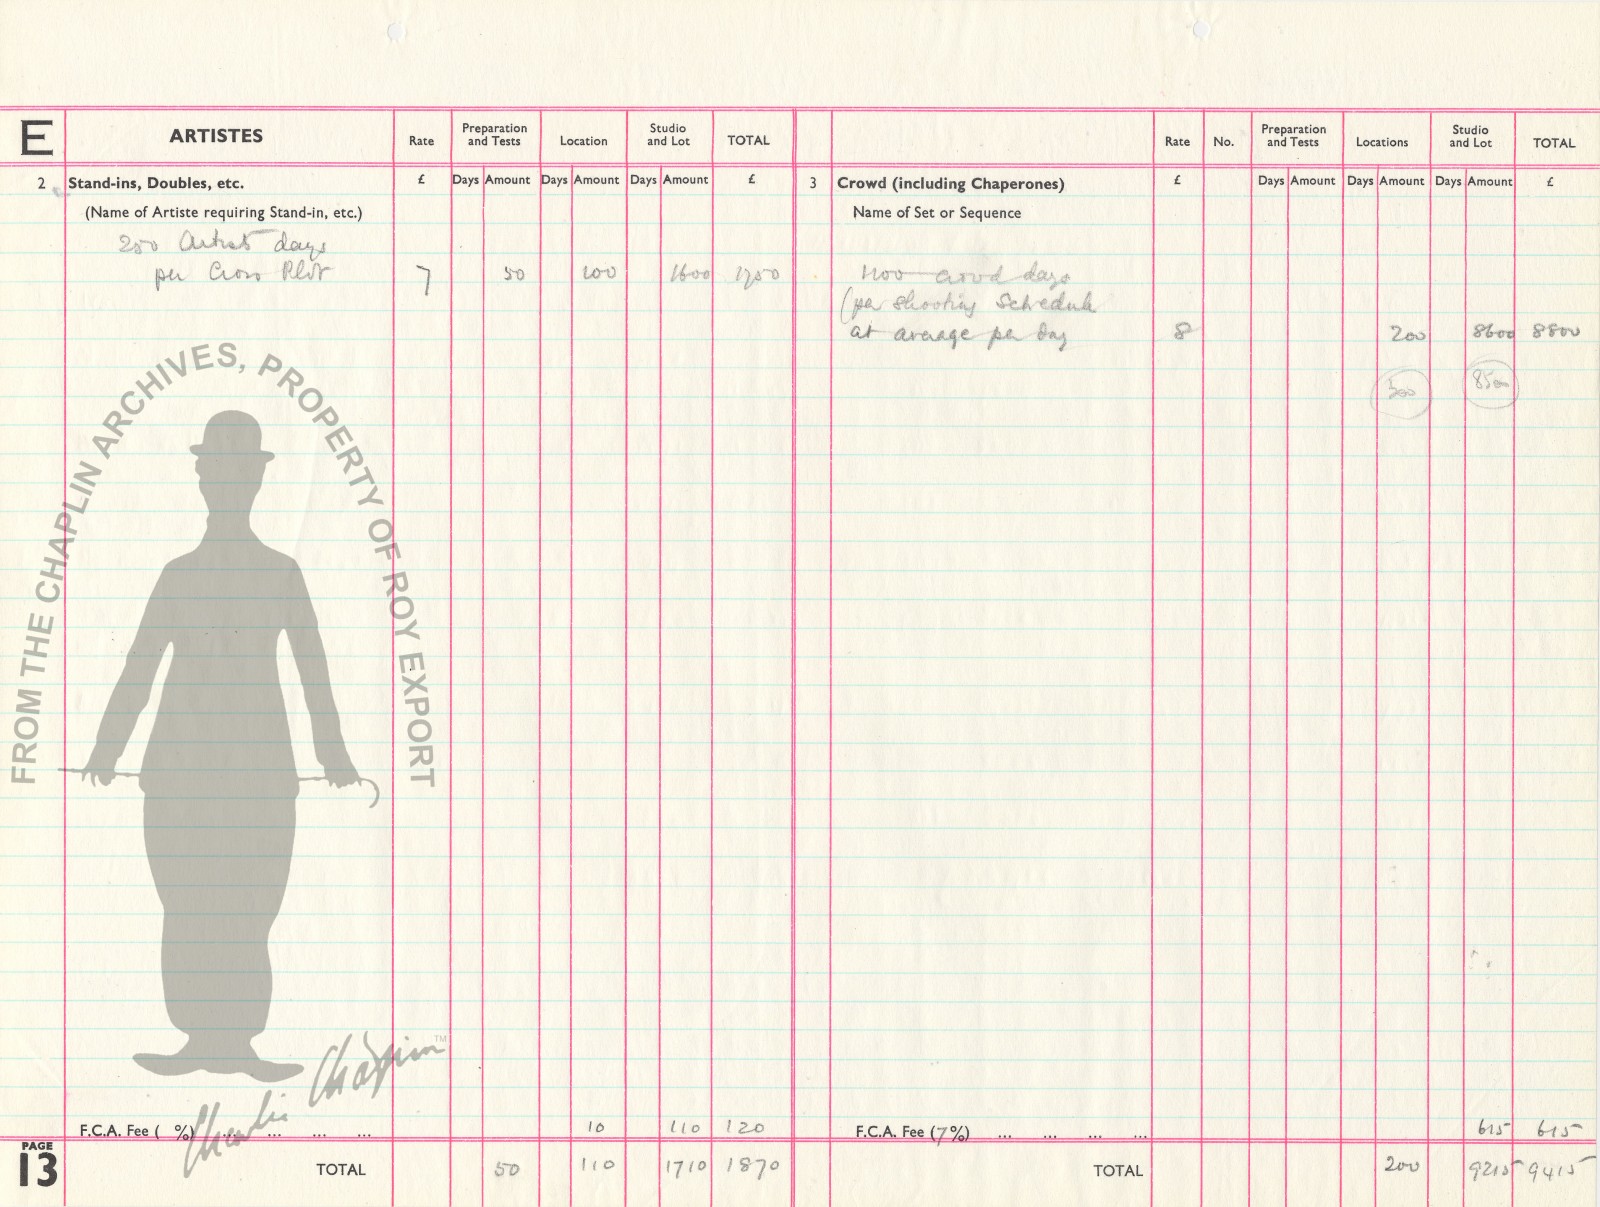 E
ARTISTES
Rate
Preparation and Tests
Location
Studio and Lot
TOTAL
Rate
No.
Preparation and Tests
Locations
Studio and Lot
TOTAL
2 Stand-ins, Doubles, etc.
£ Days Amount Days Amount Days Amount £
(Name of Artiste requiring Stand-in, etc.)
250 Artist days
per Cross Plot 7 50 100 1600 1750
3 Crowd (including Chaperones)
£ Days Amount Days Amount Days Amount £
Name of Set or Sequence
1100 crowd days
(per shooting Schedule
at average per day 8 200 8600 8800
300 8500
FROM THE CHAPLIN ARCHIVES, PROPERTY OF ROY EXPORT
Charlie Chaplin TM
F.C.A. Fee ( %) ... ... ... ... 10 110 120
TOTAL 50 110 1710 1870
F.C.A. Fee (7%) ... ... ... ... 615 615
TOTAL 200 9215 9415
PAGE
13